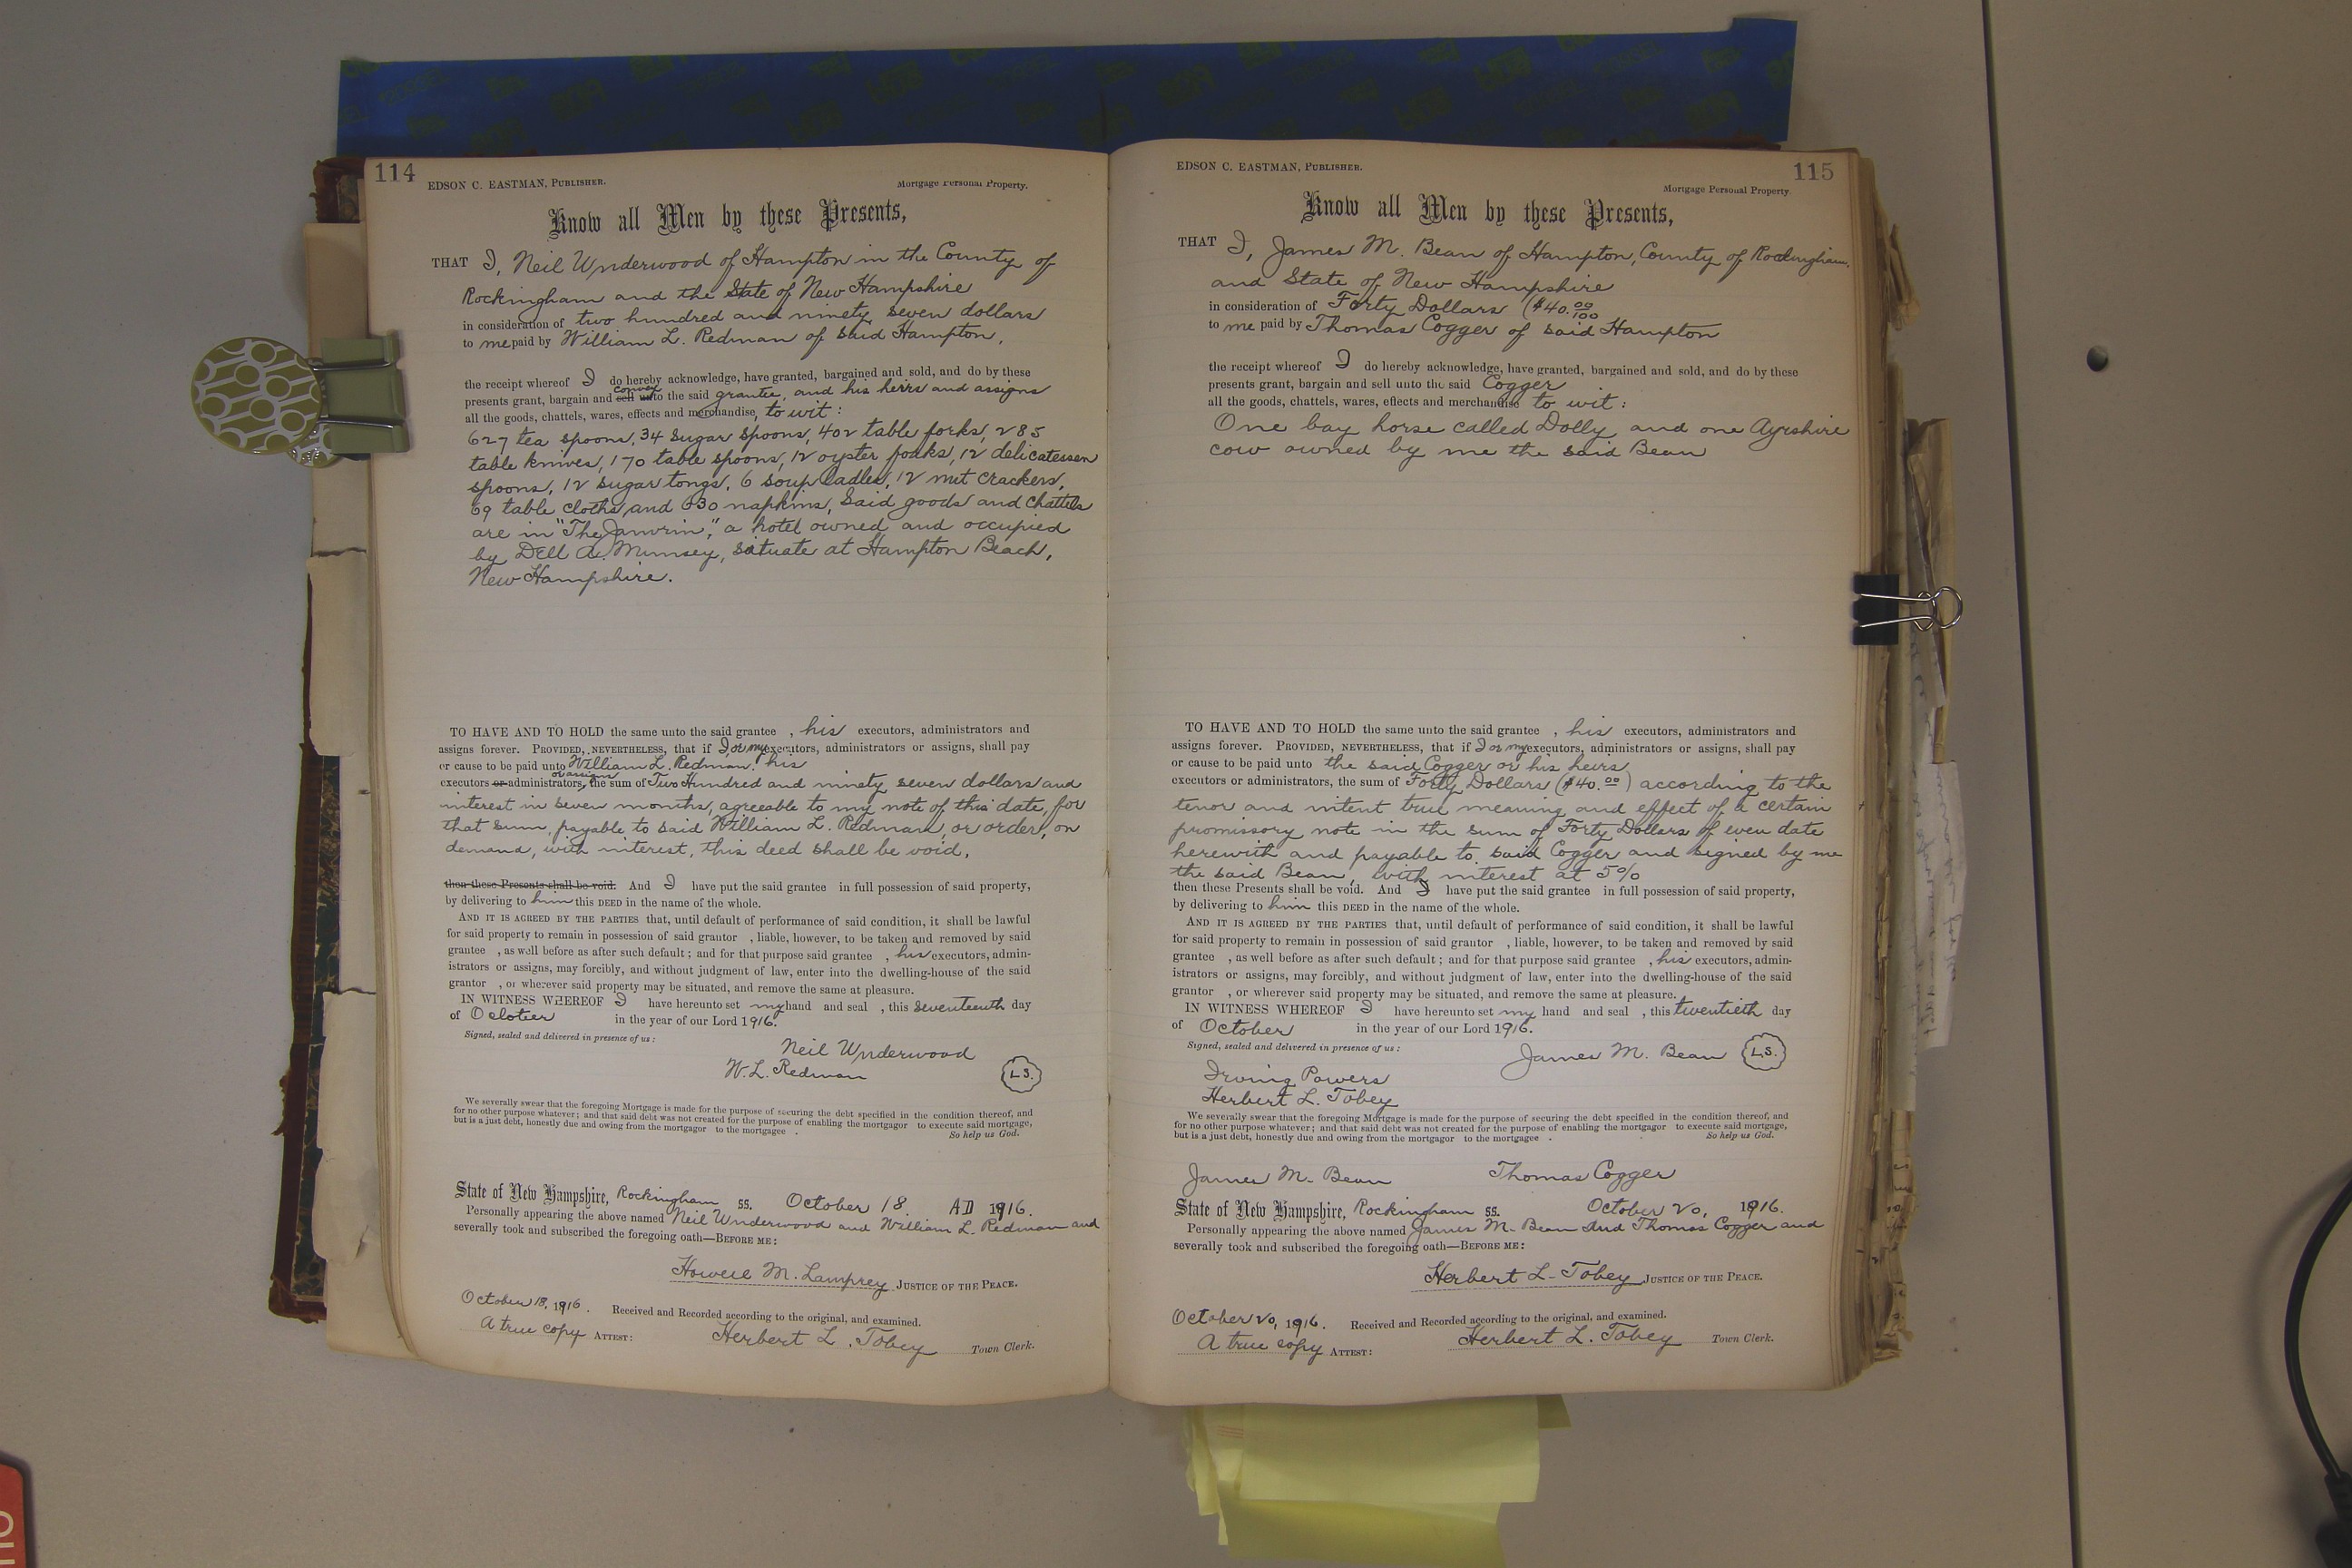 114
EDSON C. EASTMAN, PUBLISHER.
Mortgage Personal Property.
Know all Men by these Presents,
THAT I, Neil Underwood of Hampton in the County of
Rockingham and the State of New Hampshire
in consideration of two hundred and ninety seven dollars
to me paid by William L. Redman of said Hampton,
the receipt whereof I do hereby acknowledge, have granted, bargained and sold, and do by these
convey
presents grant, bargain and sell unto the said grantee, and his heirs and assigns
all the goods, chattels, wares, effects and merchandise, to wit:
627 tea spoons, 34 sugar spoons, 402 table forks, 285
table knives, 170 table spoons, 12 oyster forks, 12 delicatessen
spoons, 12 sugar tongs, 6 soup ladles, 12 nut crackers,
69 table cloths and 830 napkins, Said goods and chattels
are in "The Janvrin," a hotel owned and occupied
by Dell A. Mumsey, situate at Hampton Beach,
New Hampshire.
TO HAVE AND TO HOLD the same unto the said grantee , his executors, administrators and
assigns forever. PROVIDED, NEVERTHELESS, that if I or my executors, administrators or assigns, shall pay
or cause to be paid unto William L. Redman, his
or assigns
executors or administrators, the sum of Two Hundred and ninety seven dollars and
interest in seven months, agreeable to my note of this date, for
that sum, payable to said William L. Redman, or order, on
demand, with interest, this deed shall be void.
then these Presents shall be void. And I have put the said grantee in full possession of said property,
by delivering to him this DEED in the name of the whole.
AND IT IS AGREED BY THE PARTIES that, until default of performance of said condition, it shall be lawful
for said property to remain in possession of said grantor , liable, however, to be taken and removed by said
grantee , as well before as after such default; and for that purpose said grantee , his executors, admin-
istrators or assigns, may forcibly, and without judgment of law, enter into the dwelling-house of the said
grantor , or wherever said property may be situated, and remove the same at pleasure.
IN WITNESS WHEREOF I have hereunto set my hand and seal , this seventeenth day
of October in the year of our Lord 1916.
Signed, sealed and delivered in presence of us:
Neil Underwood
W. L. Redman L.S.
We severally swear that the foregoing Mortgage is made for the purpose of securing the debt specified in the condition thereof, and
for no other purpose whatever; and that said debt was not created for the purpose of enabling the mortgagor to execute said mortgage,
but is a just debt, honestly due and owing from the mortgagor to the mortgagee . So help us God.
State of New Hampshire, Rockingham ss. October 18. AD 1916.
Personally appearing the above named Neil Underwood and William L. Redman and
severally took and subscribed the foregoing oath—BEFORE ME:
Howell M. Lamprey JUSTICE OF THE PEACE.
October 18, 1916. Received and Recorded according to the original, and examined.
A true copy ATTEST: Herbert L. Tobey Town Clerk.
115
EDSON C. EASTMAN, PUBLISHER.
Mortgage Personal Property.
Know all Men by these Presents,
THAT I, James M. Bean of Hampton, County of Rockingham,
and State of New Hampshire
in consideration of Forty Dollars ($40.00/100
to me paid by Thomas Cogger of said Hampton
the receipt whereof I do hereby acknowledge, have granted, bargained and sold, and do by these
presents grant, bargain and sell unto the said Cogger
all the goods, chattels, wares, effects and merchandise to wit:
One bay horse called Dolly and one Ayrshire
cow owned by me the said Bean
TO HAVE AND TO HOLD the same unto the said grantee , his executors, administrators and
assigns forever. PROVIDED, NEVERTHELESS, that if I or my executors, administrators or assigns, shall pay
or cause to be paid unto the said Cogger or his heirs
executors or administrators, the sum of Forty Dollars ($40.00) according to the
tenor and intent true meaning and effect of a certain
promissory note in the sum of Forty Dollars of even date
herewith and payable to said Cogger and signed by me
the said Bean, with interest at 5%
then these Presents shall be void. And I have put the said grantee in full possession of said property,
by delivering to him this DEED in the name of the whole.
AND IT IS AGREED BY THE PARTIES that, until default of performance of said condition, it shall be lawful
for said property to remain in possession of said grantor , liable, however, to be taken and removed by said
grantee , as well before as after such default; and for that purpose said grantee , his executors, admin-
istrators or assigns, may forcibly, and without judgment of law, enter into the dwelling-house of the said
grantor , or wherever said property may be situated, and remove the same at pleasure.
IN WITNESS WHEREOF I have hereunto set my hand and seal , this twentieth day
of October in the year of our Lord 1916.
Signed, sealed and delivered in presence of us:
James M. Bean L.S.
Irving Powers
Herbert L. Tobey
We severally swear that the foregoing Mortgage is made for the purpose of securing the debt specified in the condition thereof, and
for no other purpose whatever; and that said debt was not created for the purpose of enabling the mortgagor to execute said mortgage,
but is a just debt, honestly due and owing from the mortgagor to the mortgagee . So help us God.
James M. Bean Thomas Cogger
State of New Hampshire, Rockingham ss. October 20, 1916.
Personally appearing the above named James M. Bean and Thomas Cogger and
severally took and subscribed the foregoing oath—BEFORE ME:
Herbert L. Tobey JUSTICE OF THE PEACE.
October 20, 1916. Received and Recorded according to the original, and examined.
A true copy ATTEST: Herbert L. Tobey Town Clerk.